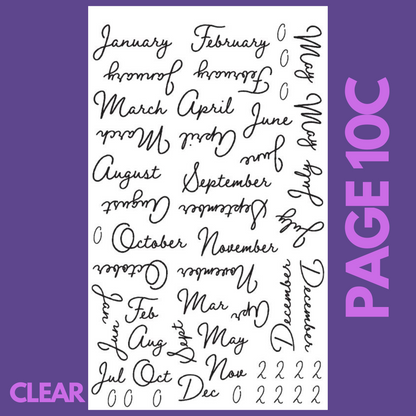 January February 0
January February 0
0
May
March April
March April
June
May
June
July
August
September
August
September
July
0 October November
October November
December
December
Jan Feb Mar Apr
Jun Aug Sept May
Jul Oct Nov 2 2 2 2
0 0 0 Dec 0 2 2 2 2
PAGE 10C
CLEAR